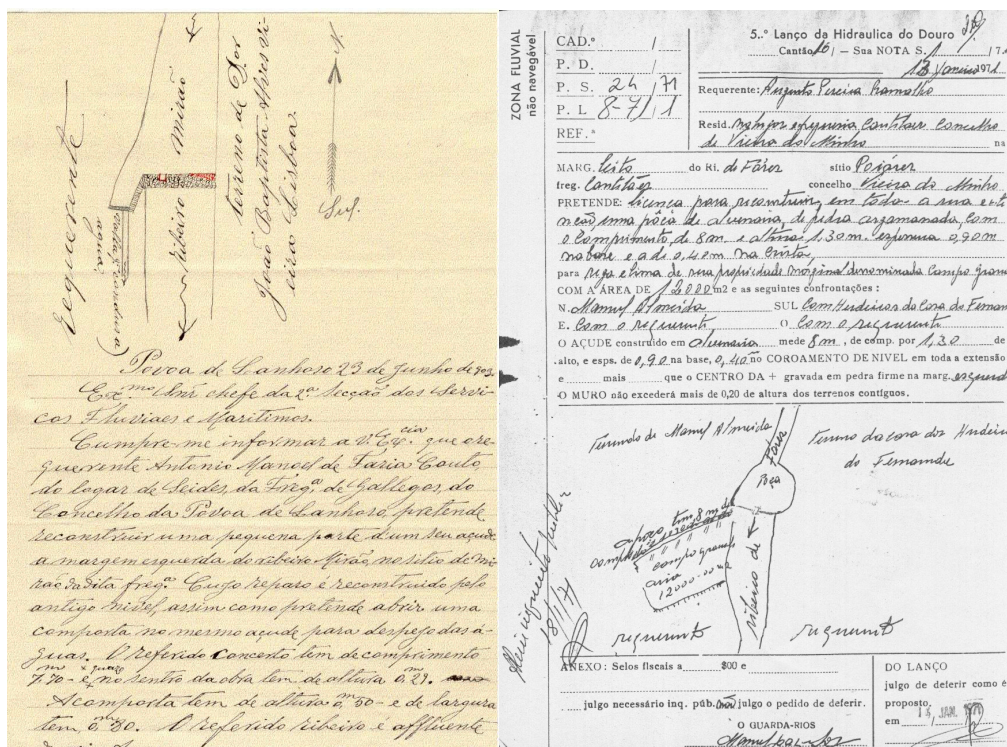 equerente
Ribeiro Mirão
terreno de D.or
João Baptista Alves Vi
eira Lisboa.
N.
Sul.
Povoa de Lanhoso 23 de Junho de 903
Ex.mo Snr chefe da 2ª Secção dos Servi
cos Fluviaes e Maritimos.
Cumpre-me informar a V. Ex.cia que o re
querente Antonio Manoel de Faria Couto
do logar de Seides, da Freg.ª de Gallegos, do
Concelho da Povoa de Lanhoso, pretende
reconstruir uma pequena parte d'um seu açude
a margem esquerda do ribeiro Mirão, no sitio de Mi
rão da dita freg.ª Cujo reparo é reconstruido pelo
antigo nivel, assim como pretende abrir uma
comporta no mesmo açude para despejo das á-
guas. O referido concerto tem de comprimento
7.m70 - e no sentro da obra tem de altura 0.m29.
A comporta tem de altura 0.m50 - e de largura
tem 0.m80. O referido ribeiro é affluente
ZONA FLUVIAL
não navegável
CAD.º /
P. D. /
P. S. 24 / 71
P. L 8-71 / 1
REF.ª
5.º Lanço da Hidraulica do Douro
Cantão 16 / - Sua NOTA S. 1 / 7
13 Janeiro 971
Requerente: Augusto Pereira Ramalho
Resid. freguesia Cantilaes Concelho
de Vieira do Minho na
MARG. leito do Ri. de Fárer sítio Poiáres
freg. Cantilães concelho Vieira do Minho
PRETENDE: licença para reconstruir, em toda a sua exte
nção, uma pôça de alvenaria, de pedra argamaçada, com
o Comprimento, de 8m. e altura 1,30m. espessura 0,90m
na base e a de 0,40m na Crista,
para rega e lima de sua propriedade marginal denominada Campo Grand
COM A ÁREA DE 12000 m2 e as seguintes confrontações :
N. Manuel Almeida SUL Com Herdeiros da Casa do Fernan
E. Com o requerente, O Com o requerente
O AÇUDE construído em alvenaria mede 8m, de comp. por 1,30 de
alto, e esps. de 0,90 na base, 0,40 no COROAMENTO DE NIVEL em toda a extensão
e mais que o CENTRO DA + gravada em pedra firme na marg. esquerda
O MURO não excederá mais de 0,20 de altura dos terrenos contíguos.
Terrenos de Manuel Almeida
Fárer
Poça
Terreno da casa dos Herdeir
do Fernande
a poço tem 8m de
campo grande
aria
12000.00 m2
ribeiro de
requerente
requerente
18/1/71
ANEXO: Selos fiscais a $00 e
julgo necessário inq. púb. não julgo o pedido de deferir.
O GUARDA-RIOS
DO LANÇO
julgo de deferir como é
proposto.
em 15. JAN. 1971